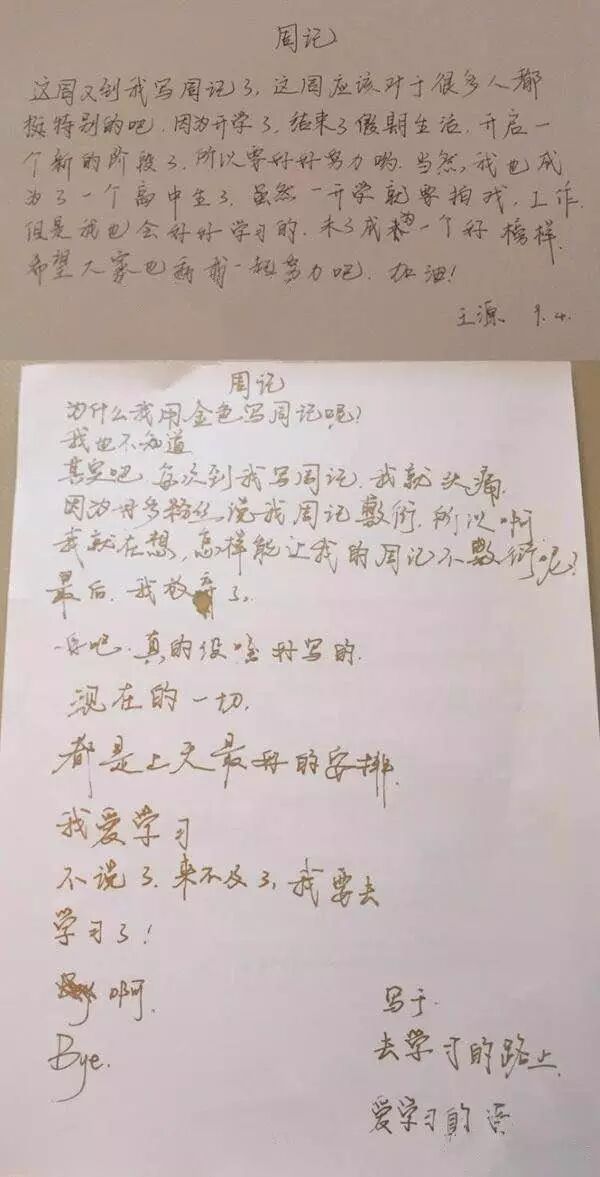 周记
这周又到我写周记了,这周应该对于很多人都
挺特别的吧.因为开学了.结束了假期生活.开启一
个新的阶段了.所以要好好努力哟.当然,我也成
为了一个高中生了.虽然一开学就要拍戏,工作.
但是我也会好好学习的.未了成为一个好榜样.
希望大家也和我一起努力吧.加油!
王源. 9.4.
周记
为什么我用金色写周记呢?
我也不知道
其实吧.每次到我写周记.我就头痛.
因为好多粉丝说我周记敷衍.所以啊
我就在想,怎样能让我的周记不敷衍呢?
最后.我放弃了.
好吧.真的没啥好写的.
现在的一切.
都是上天最好的安排.
我爱学习
不说了.来不及了,我要去
学习了!
啊.
Bye.
写于.
去学习的路上.
爱学习的源